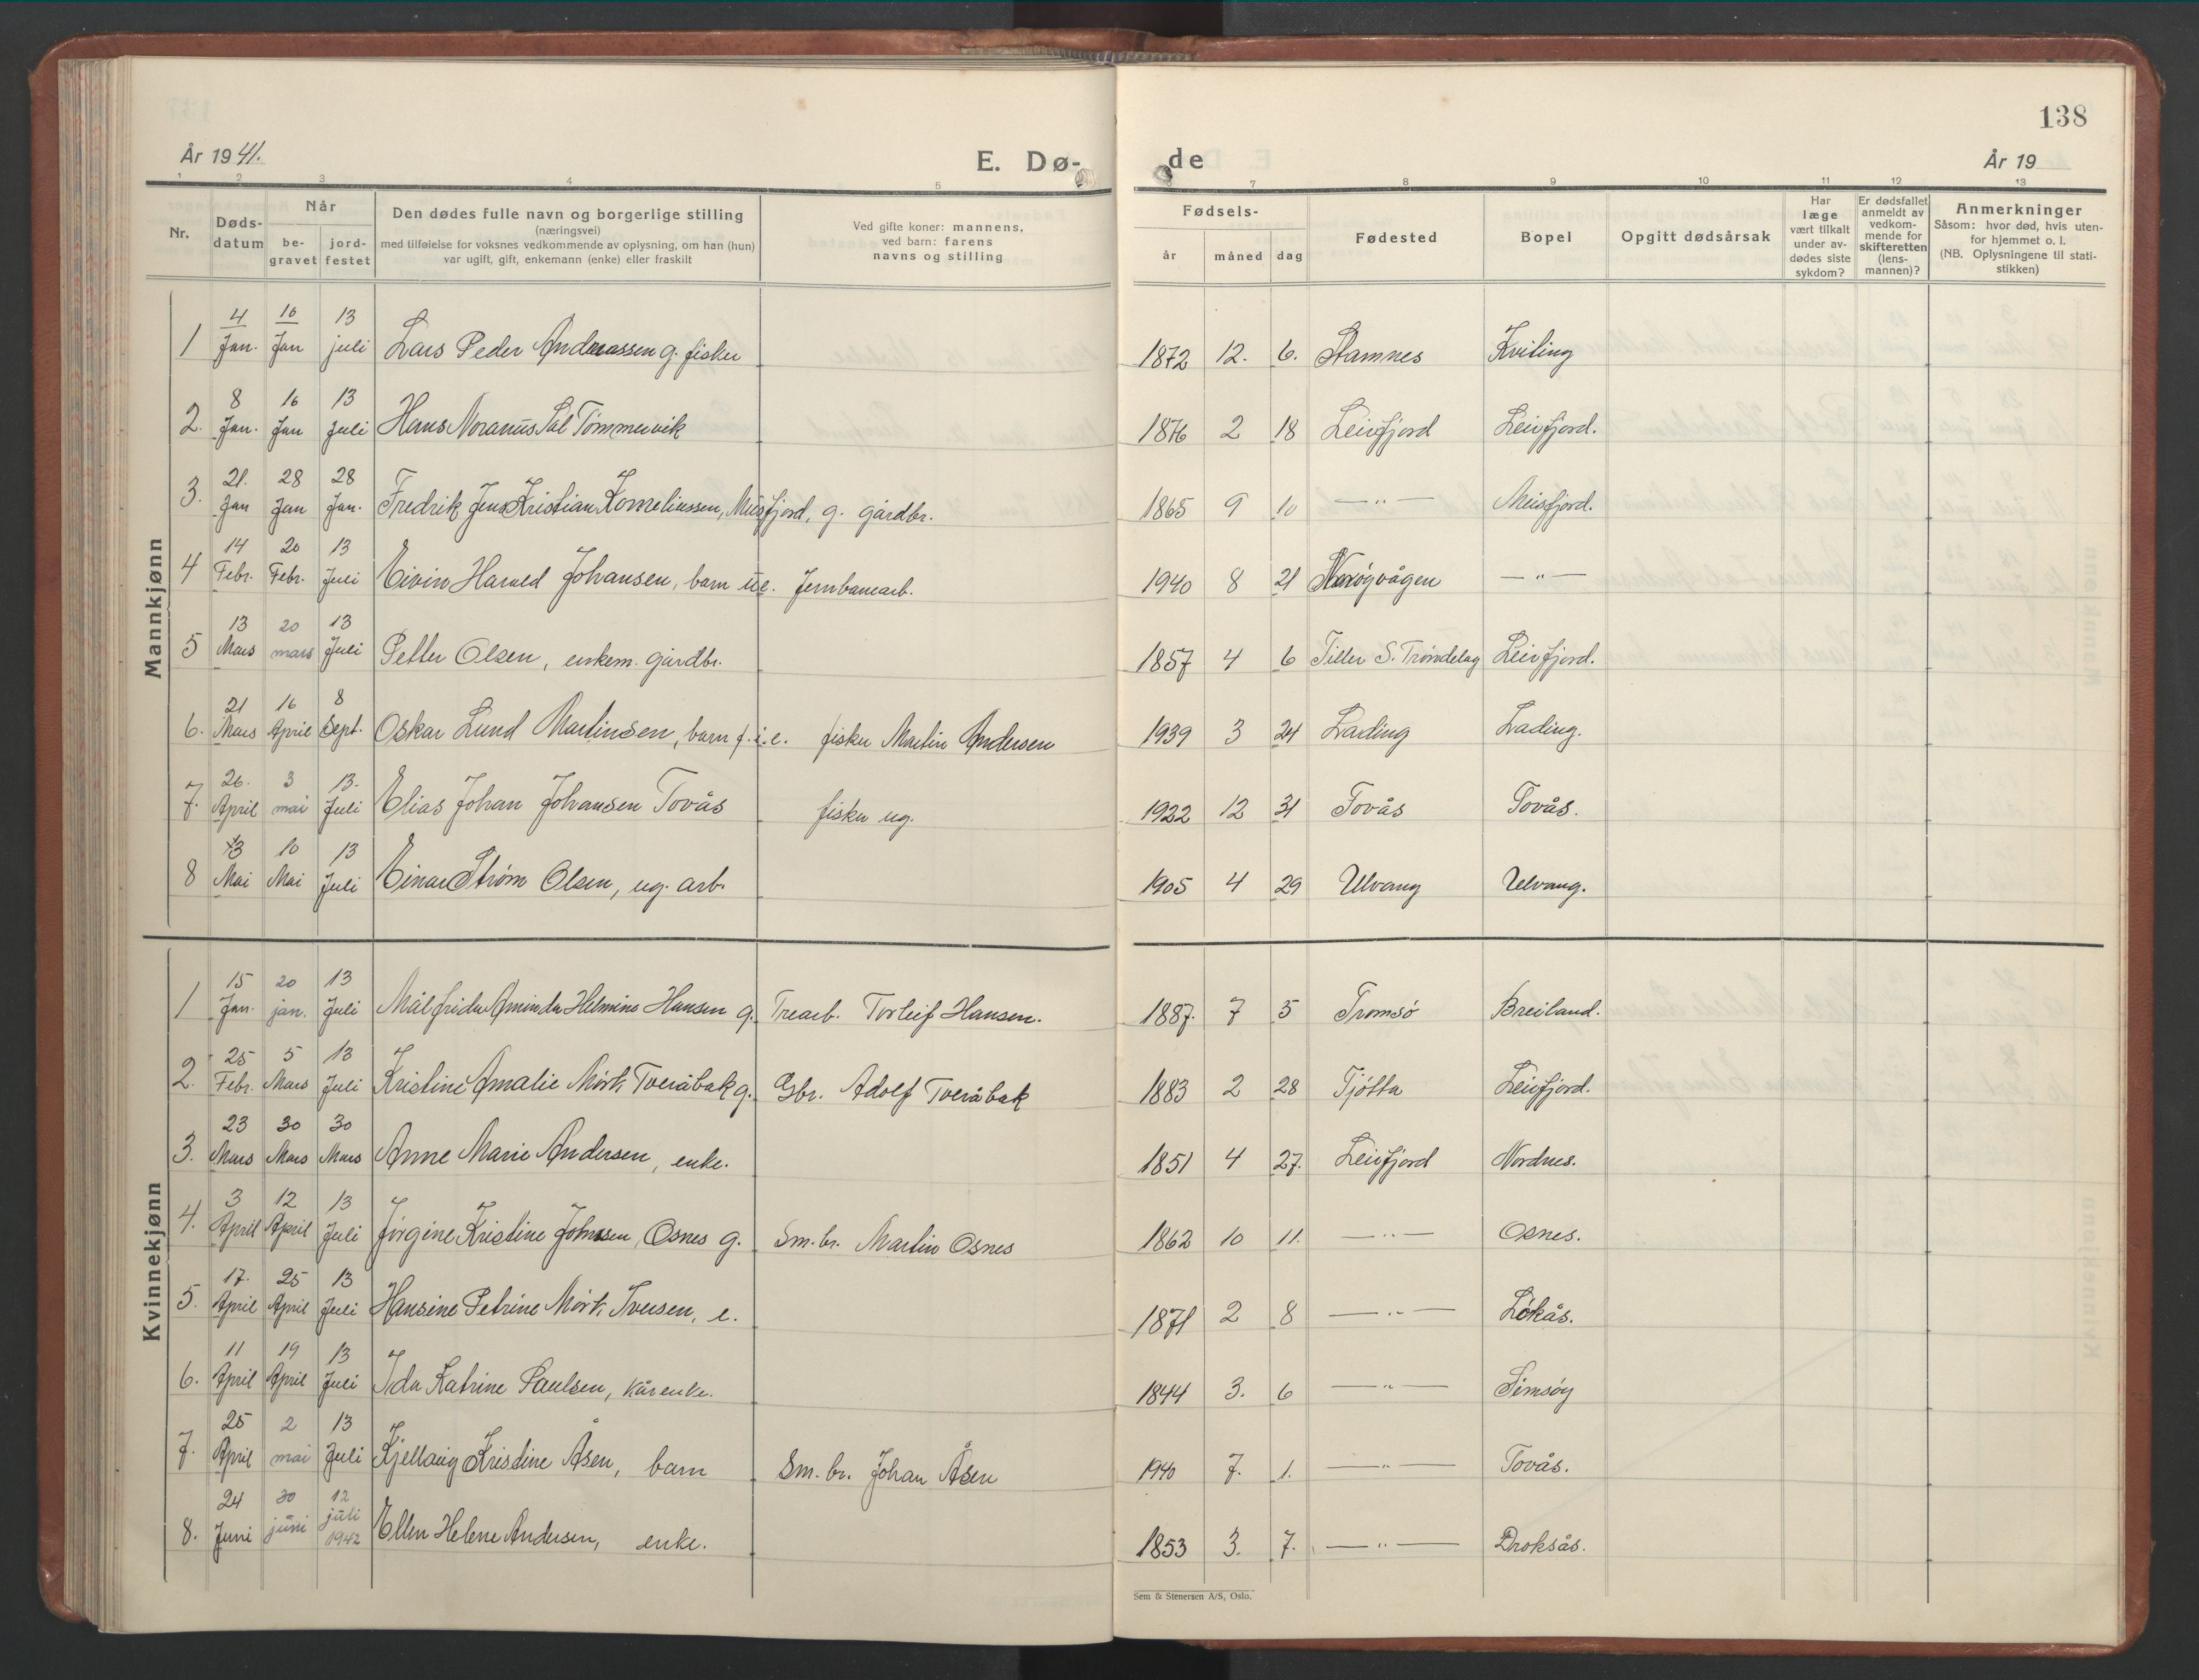 138
År 1941.
E. Dø-
de
År 19
1 2 3 4 5 6 7 8 9 10 11 12 13
Nr.
Døds-
datum
Når
be-
gravet
jord-
festet
Den dødes fulle navn og borgerlige stilling
(næringsvei)
med tilføielse for voksnes vedkommende av oplysning, om han (hun)
var ugift, gift, enkemann (enke) eller fraskilt
Ved gifte koner: mannens,
ved barn: farens
navns og stilling
Fødsels-
år måned dag
Fødested
Bopel
Opgitt dødsårsak
Har
læge
vært tilkalt
under av-
dødes siste
sykdom?
Er dødsfallet
anmeldt av
vedkom-
mende for
skifteretten
(lens-
mannen)?
Anmerkninger
Såsom: hvor død, hvis uten-
for hjemmet o. l.
(NB. Oplysningene til stati-
stikken)
Mannkjønn
1 4 Jan. 16 Jan 13 juli Lars Peder Andreassen g. fisker 1872 12. 6. Stamnes Kviting
2. 8 Jan. 16 Jan 13 Juli Hans Noranus Sal Tømmervik 1876 2 18 Leirfjord Leirfjord.
3. 21. Jan 28 Jan 28 Jan. Fredrik Jens Kristian Korneliussen, Meisfjord, g. gårdbr. 1865 9 10 —"— Meisfjord.
4 14 Febr. 20 Febr. 13 Juli Eivin Harald Johansen, barn u.e. Jernbanearb. 1940 8 21 —"—
5 13 Mars 20 mars 13 Juli Petter Olsen, enkem. gårdbr. 1857 4 6 Tiller S. Trøndelag Leirfjord.
6. 21 Mars 16 April 8 Sept. Oskar Lund Martinsen, barn f.i.e. fisker Martin Andersen 1939 3 24 Lading Lading.
7. 26. April 3 mai 13. Juli Elias Johan Johansen Tovås fisker ug. 1922 12 31 Tovås Tovås.
8 3 Mai 10 Mai 13 Juli Einar Strøm Olsen, ug. arb. 1905 4 29 Ulvang Ulvang.
Kvinnekjønn
1 15 Jan. 20 jan. 13 Juli Målfrida Aminda Helmine Hansen g. Trearb. Torleif Hansen. 1887. 7 5 Tromsø Breiland.
2. 25 Febr. 5 Mars 13 Juli Kristine Amalie Mørk Tveråbak g. Gbr. Adolf Tveråbak 1883 2 28 Tjøtta Leirfjord.
3. 23 Mars 30 Mars 30 Mars Anne Marie Andersen, enke. 1851 4 27. Leirfjord Nordnes.
4. 3 April 12 April 13 Juli Jørgine Kristine Johnsen, Osnes g. Sm.br. Martin Osnes 1862 10 11. —"— Osnes.
5. 17. April 25 April 13 Juli Hansine Petrine Mørk Iversen, e. 1871 2 8 —"— Løkås.
6. 11 April 19 April 13 Juli Ida Katrine Paulsen, kårenke. 1844 3. 6 —"— Simsøy
7. 25 April 2 mai 13 Juli Kjellaug Kristine Åsen, barn Sm. br. Johan Åsen 1940 7. 1. —"— Tovås.
8. 24 Juni 30 juni 12 juli 1942 Ellen Helene Andersen, enke. 1853 3. 7. —"— Droksås.
Sem & Stenersen A/S, Oslo.